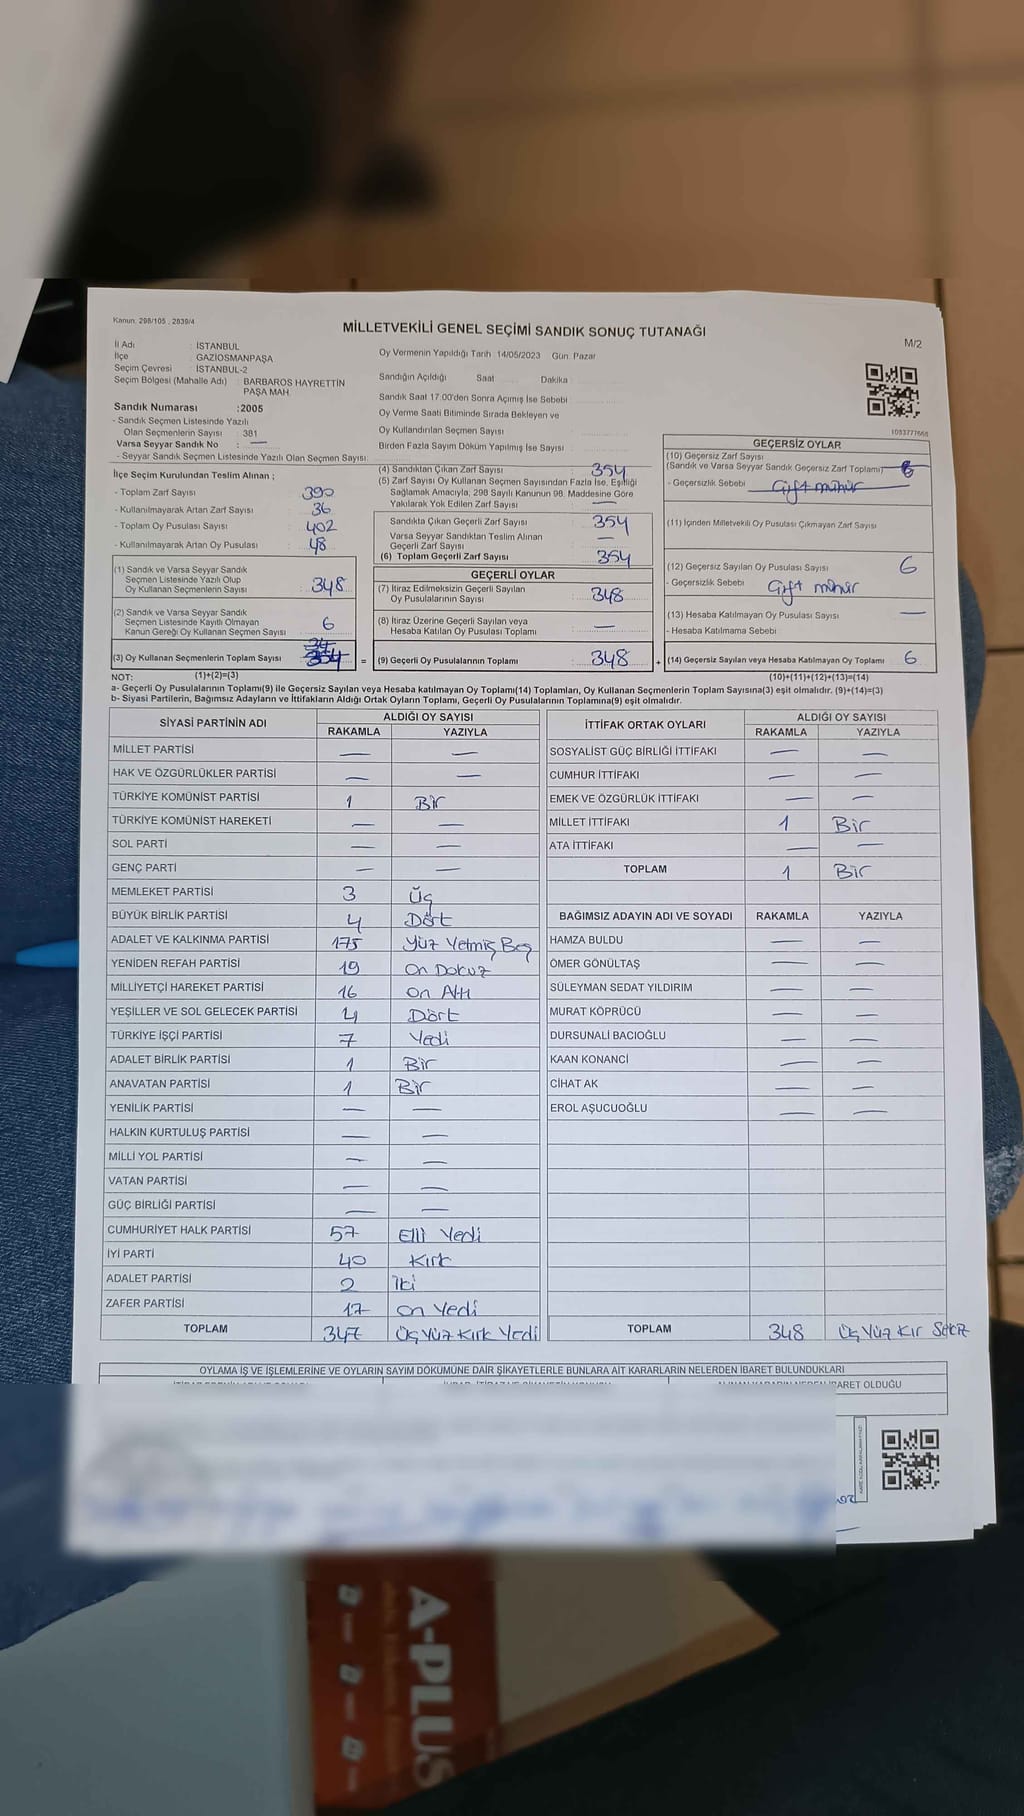 Kanun, 298/105 , 2839/4
MİLLETVEKİLİ GENEL SEÇİMİ SANDIK SONUÇ TUTANAĞI
M/2
İl Adı : İSTANBUL
İlçe : GAZİOSMANPAŞA
Seçim Çevresi : İSTANBUL-2
Seçim Bölgesi (Mahalle Adı) : BARBAROS HAYRETTİN
PAŞA MAH.
Sandık Numarası :2005
- Sandık Seçmen Listesinde Yazılı
Olan Seçmenlerin Sayısı : 381
Varsa Seyyar Sandık No : —
- Seyyar Sandık Seçmen Listesinde Yazılı Olan Seçmen Sayısı:
Oy Vermenin Yapıldığı Tarih :14/05/2023 Gün: Pazar
Sandığın Açıldığı Saat Dakika :
Sandık Saat 17.00'den Sonra Açımış İse Sebebi
Oy Verme Saati Bitiminde Sırada Bekleyen ve
Oy Kullandırılan Seçmen Sayısı
Birden Fazla Sayım Döküm Yapılmış İse Sayısı
1093777668
İlçe Seçim Kurulundan Teslim Alınan ;
- Toplam Zarf Sayısı : 390
- Kullanılmayarak Artan Zarf Sayısı : 36
- Toplam Oy Pusulası Sayısı : 402
- Kullanılmayarak Artan Oy Pusulası : 48
(1) Sandık ve Varsa Seyyar Sandık
Seçmen Listesinde Yazılı Olup
Oy Kullanan Seçmenlerin Sayısı : 348
(2) Sandık ve Varsa Seyyar Sandık
Seçmen Listesinde Kayıtlı Olmayan
Kanun Gereği Oy Kullanan Seçmen Sayısı : 6
(3) Oy Kullanan Seçmenlerin Toplam Sayısı 354 =
(4) Sandıktan Çıkan Zarf Sayısı : 354
(5) Zarf Sayısı Oy Kullanan Seçmen Sayısından Fazla İse, Eşitliği
Sağlamak Amacıyla; 298 Sayılı Kanunun 98. Maddesine Göre
Yakılarak Yok Edilen Zarf Sayısı : —
Sandıkta Çıkan Geçerli Zarf Sayısı : 354
Varsa Seyyar Sandıktan Teslim Alınan
Geçerli Zarf Sayısı : —
(6) Toplam Geçerli Zarf Sayısı : 354
GEÇERLİ OYLAR
(7) İtiraz Edilmeksizin Geçerli Sayılan
Oy Pusulalarının Sayısı : 348
(8) İtiraz Üzerine Geçerli Sayılan veya
Hesaba Katılan Oy Pusulası Toplamı : —
(9) Geçerli Oy Pusulalarının Toplamı : 348 +
GEÇERSİZ OYLAR
(10) Geçersiz Zarf Sayısı
(Sandık ve Varsa Seyyar Sandık Geçersiz Zarf Toplamı) 6
- Geçersizlik Sebebi Çift mühür
(11) İçinden Milletvekili Oy Pusulası Çıkmayan Zarf Sayısı
(12) Geçersiz Sayılan Oy Pusulası Sayısı 6
- Geçersizlik Sebebi : Çift mühür
(13) Hesaba Katılmayan Oy Pusulası Sayısı —
- Hesaba Katılmama Sebebi
(14) Geçersiz Sayılan veya Hesaba Katılmayan Oy Toplamı : 6
NOT: (1)+(2)=(3) (10)+(11)+(12)+(13)=(14)
a- Geçerli Oy Pusulalarının Toplamı(9) ile Geçersiz Sayılan veya Hesaba katılmayan Oy Toplamı(14) Toplamları, Oy Kullanan Seçmenlerin Toplam Sayısına(3) eşit olmalıdır. (9)+(14)=(3)
b- Siyasi Partilerin, Bağımsız Adayların ve İttifakların Aldığı Ortak Oyların Toplamı, Geçerli Oy Pusulalarının Toplamına(9) eşit olmalıdır.
SİYASİ PARTİNİN ADI ALDIĞI OY SAYISI
RAKAMLA YAZIYLA
MİLLET PARTİSİ — —
HAK VE ÖZGÜRLÜKLER PARTİSİ — —
TÜRKİYE KOMÜNİST PARTİSİ 1 Bir
TÜRKİYE KOMÜNİST HAREKETİ — —
SOL PARTİ — —
GENÇ PARTİ — —
MEMLEKET PARTİSİ 3 Üç
BÜYÜK BİRLİK PARTİSİ 4 Dört
ADALET VE KALKINMA PARTİSİ 175 Yüz Yetmiş Beş
YENİDEN REFAH PARTİSİ 19 On Dokuz
MİLLİYETÇİ HAREKET PARTİSİ 16 On Altı
YEŞİLLER VE SOL GELECEK PARTİSİ 4 Dört
TÜRKİYE İŞÇİ PARTİSİ 7 Yedi
ADALET BİRLİK PARTİSİ 1 Bir
ANAVATAN PARTİSİ 1 Bir
YENİLİK PARTİSİ — —
HALKIN KURTULUŞ PARTİSİ — —
MİLLİ YOL PARTİSİ — —
VATAN PARTİSİ — —
GÜÇ BİRLİĞİ PARTİSİ — —
CUMHURİYET HALK PARTİSİ 57 Elli Yedi
İYİ PARTİ 40 Kırk
ADALET PARTİSİ 2 İki
ZAFER PARTİSİ 17 On Yedi
TOPLAM 347 Üç Yüz Kırk Yedi
İTTİFAK ORTAK OYLARI ALDIĞI OY SAYISI
RAKAMLA YAZIYLA
SOSYALİST GÜÇ BİRLİĞİ İTTİFAKI — —
CUMHUR İTTİFAKI — —
EMEK VE ÖZGÜRLÜK İTTİFAKI — —
MİLLET İTTİFAKI 1 Bir
ATA İTTİFAKI — —
TOPLAM 1 Bir
BAĞIMSIZ ADAYIN ADI VE SOYADI RAKAMLA YAZIYLA
HAMZA BULDU — —
ÖMER GÖNÜLTAŞ — —
SÜLEYMAN SEDAT YILDIRIM — —
MURAT KÖPRÜCÜ — —
DURSUNALİ BACIOĞLU — —
KAAN KONANCİ — —
CİHAT AK — —
EROL AŞUCUOĞLU — —
TOPLAM 348 Üç Yüz Kır Sekiz
OYLAMA İŞ VE İŞLEMLERİNE VE OYLARIN SAYIM DÖKÜMÜNE DAİR ŞİKAYETLERLE BUNLARA AİT KARARLARIN NELERDEN İBARET BULUNDUKLARI
İBARET OLDUĞU
A-PLUS